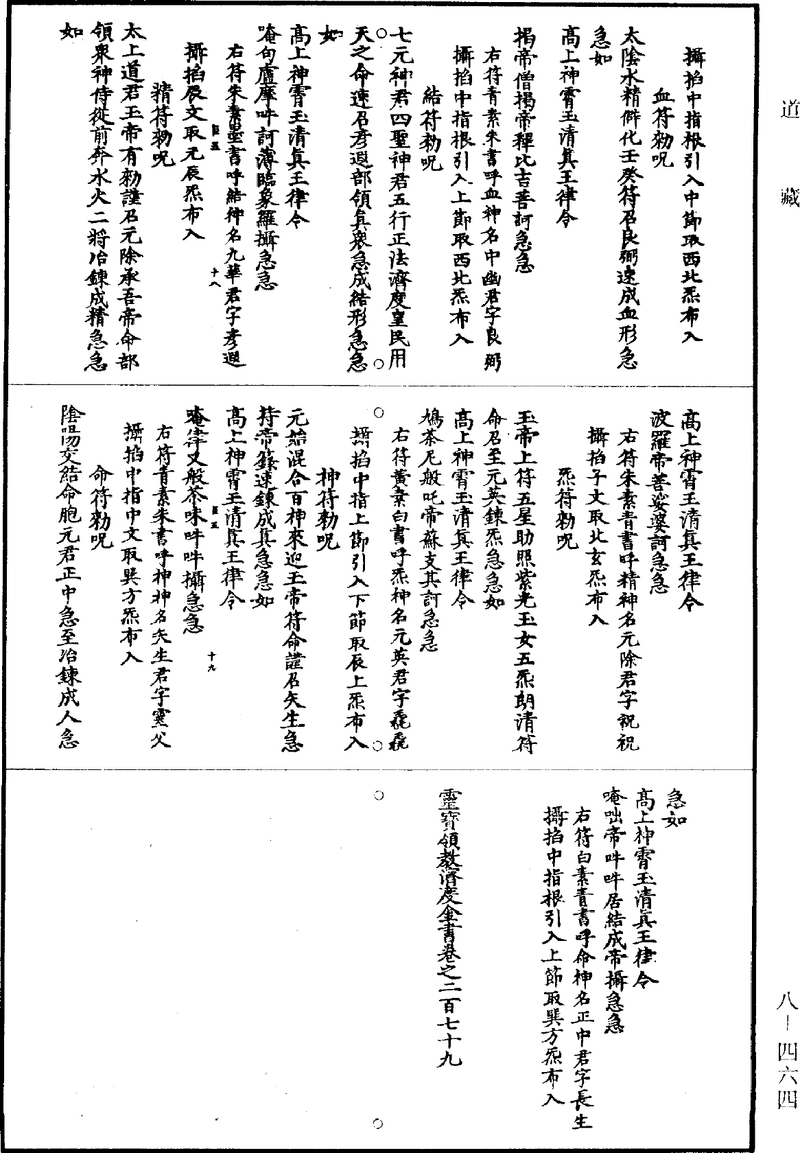 道藏
攝掐中指根引入中節取西北炁布入
血符勑呪
太陰水精解化壬癸符召良弼速成血形急
急如
高上神霄玉清眞王律令
揭帝僧揭帝釋比吉菩訶急急
右符青素朱書呼血神名中幽君字良弼
攝掐中指根引入上節取西北炁布入
結符勑呪
七元神君四聖神君五行正法濟度皇民用
天之命速召彥遐部領眞衆急成結形急急
如
高上神霄玉清眞王律令
唵旬盧摩吽訶薄臨象羅攝急急
右符朱素墨書呼結神名九華君字彥遐
十八
攝掐辰文取元辰炁布入
精符勑呪
太上道君玉帝有勑謹召元除承吾帝命部
領衆神侍從前奔水火二將冶鍊成精急急
如
高上神霄玉清眞王律令
波羅帝菩娑婆訶急急
右符朱素青書呼精神名元除君字祝祝
攝掐子文取北玄炁布入
炁符勑呪
玉帝上符五星助照紫光玉女五炁朗清符
命召至元英鍊炁急急如
高上神霄玉清眞王律令
鳩茶尼般吒帝蘇支其訶急急
右符黃素白書呼炁神名元英君字毳毳
攝掐中指上節引入下節取辰上炁布入
神符勑呪
元始混合百神來迎玉帝符命謹召矢生急
持帝籙速鍊成眞急急如
高上神霄玉清眞王律令
唵嚩叉般茶味吽吽攝急急
十九
右符青素朱書呼神神名矢生君字靈父
攝掐中指中文取巽方炁布入
命符勑呪
陰陽交結命胞元君正中急至冶鍊成人急
急如
高上神霄玉清眞王律令
唵咄帝吽吽居結成帝攝急急
右符白素青書呼命神名正中君字長生
攝掐中指根引入上節取巽方炁布入
靈寶領教濟度金書卷之二百七十九
八－四六四